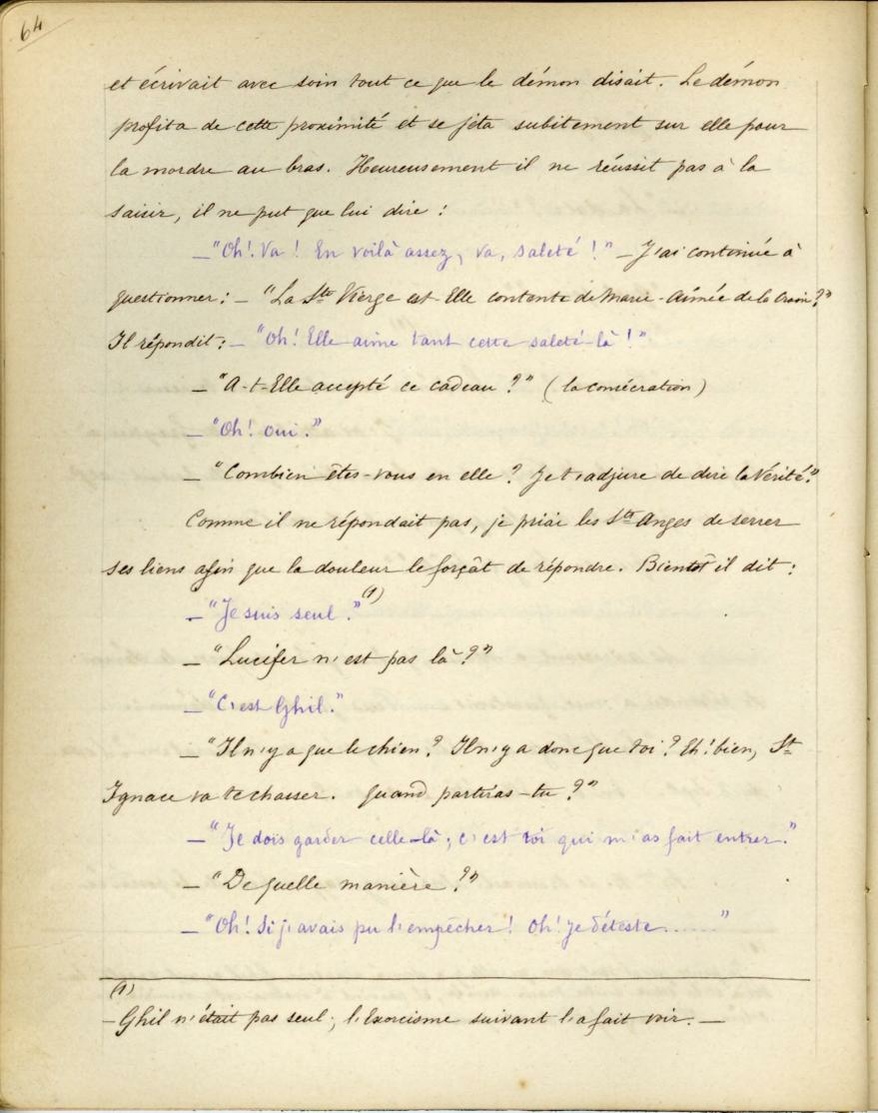 64
et écrivait avec soin tout ce que le démon disait. Le démon
profita de cette proximité et se jeta subitement sur elle pour
la mordre au bras. Heureusement il ne réussit pas à la
saisir, il ne put que lui dire :
— "Oh! Va ! En voilà assez, va, saleté !" — J'ai continué à
questionner : — "La Ste Vierge est-Elle contente de Marie-Aimée de la Croix ?"
Il répondit : — "Oh! Elle aime tant cette saleté-là !"
— "A-t-Elle accepté ce cadeau ?" (la consécration)
— "Oh! oui."
— "Combien êtes-vous en elle ? Je t'adjure de dire la Vérité."
Comme il ne répondait pas, je priai les Sts Anges de serrer
ses liens afin que la douleur le forçât de répondre. Bientôt il dit :
— "Je suis seul." (1)
— "Lucifer n'est pas là ?"
— "C'est Ghil."
— "Il n'y a que le chien ? Il n'y a donc que toi ? Eh! bien, St
Ignace va te chasser. Quand partiras-tu ?"
— "Je dois garder celle-là ; c'est toi qui m'as fait entrer."
— "De quelle manière ?"
— "Oh! Si j'avais pu l'empêcher ! Oh! Je déteste......"
(1)
— Ghil n'était pas seul ; l'Exorcisme suivant l'a fait voir. —